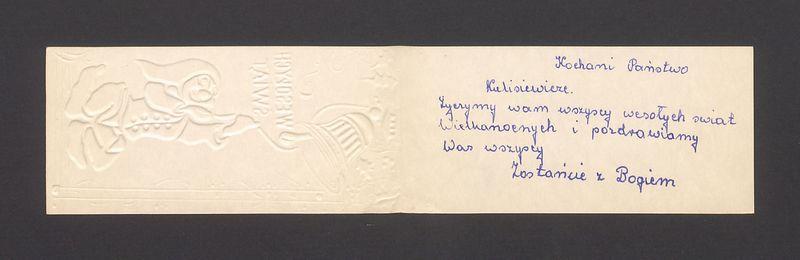 WESOŁYCH
ŚWIĄT
Kochani Państwo
Kulisiewicze.
Życzymy wam wszyscy wesołych świat
Wielkanocnych i pozdrawiamy
Was wszyscy
Zostańcie z Bogiem